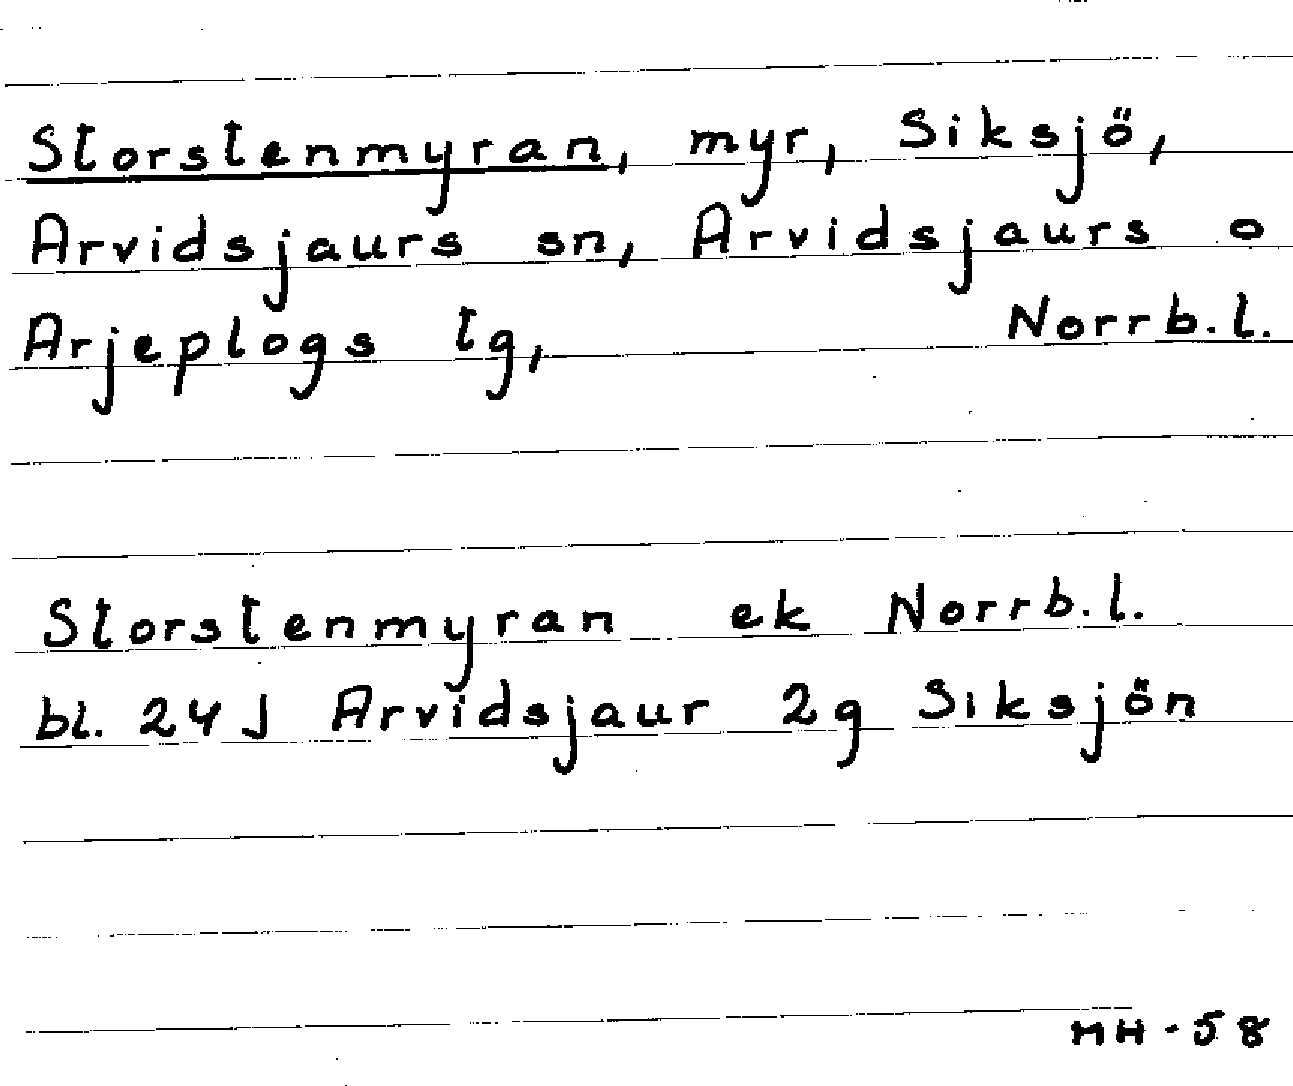 Storstenmyran, myr, Siksjö,
Arvidsjaurs sn, Arvidsjaurs o
Arjeplogs tg, Norrb.l.
Storstenmyran ek Norrb.l.
bl. 24J Arvidsjaur 2g Siksjön
MH-58